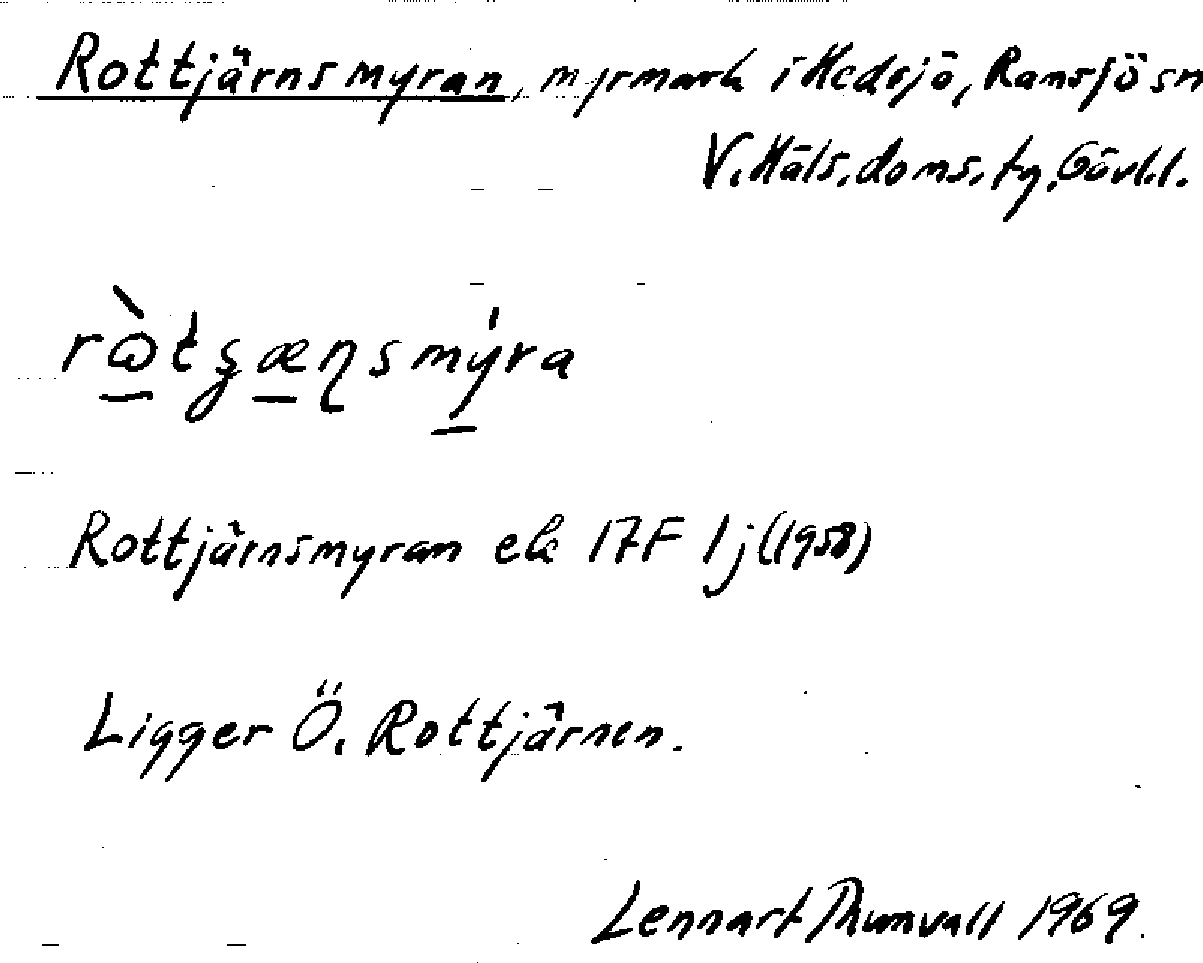 Rottjärnsmyran, myrmark i Hedsjö, Ramsjö sn
V. Häls. doms. tg, Gävl.l.
rὼtʂæɳsmýra
Rottjärnsmyran ek 17F 1j (1958)
Ligger Ö. Rottjärnen.
Lennart Thunvall 1969.